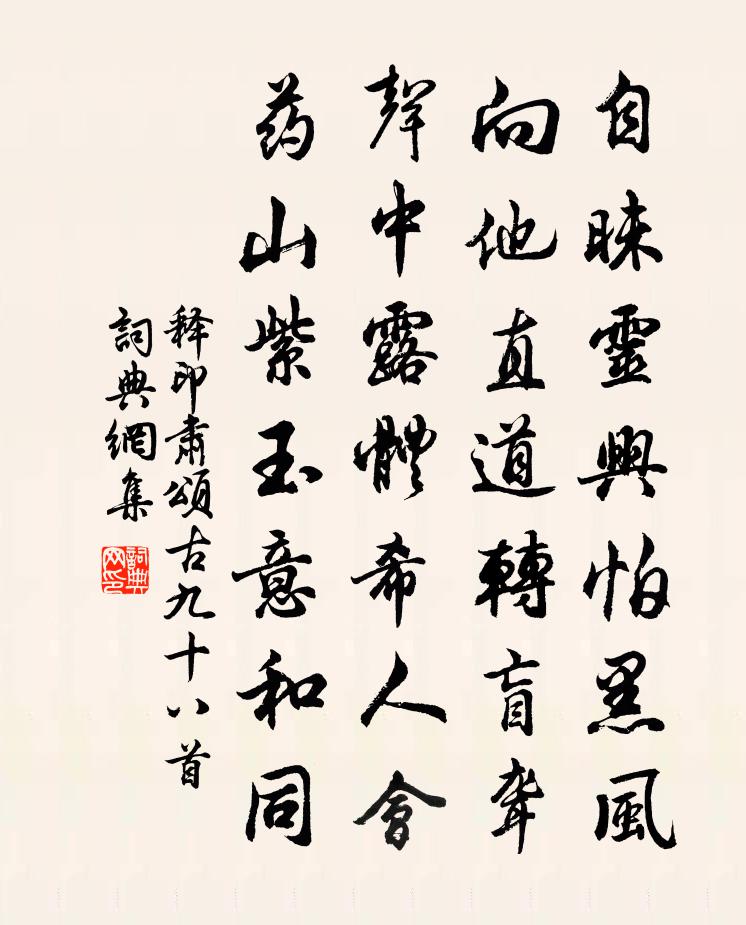 自昧靈興怕黑風
向他直道轉盲聾
聲中露體希人會
药山紫玉意和同
释印肅頌古九十八首
詞典網集
詞典网印